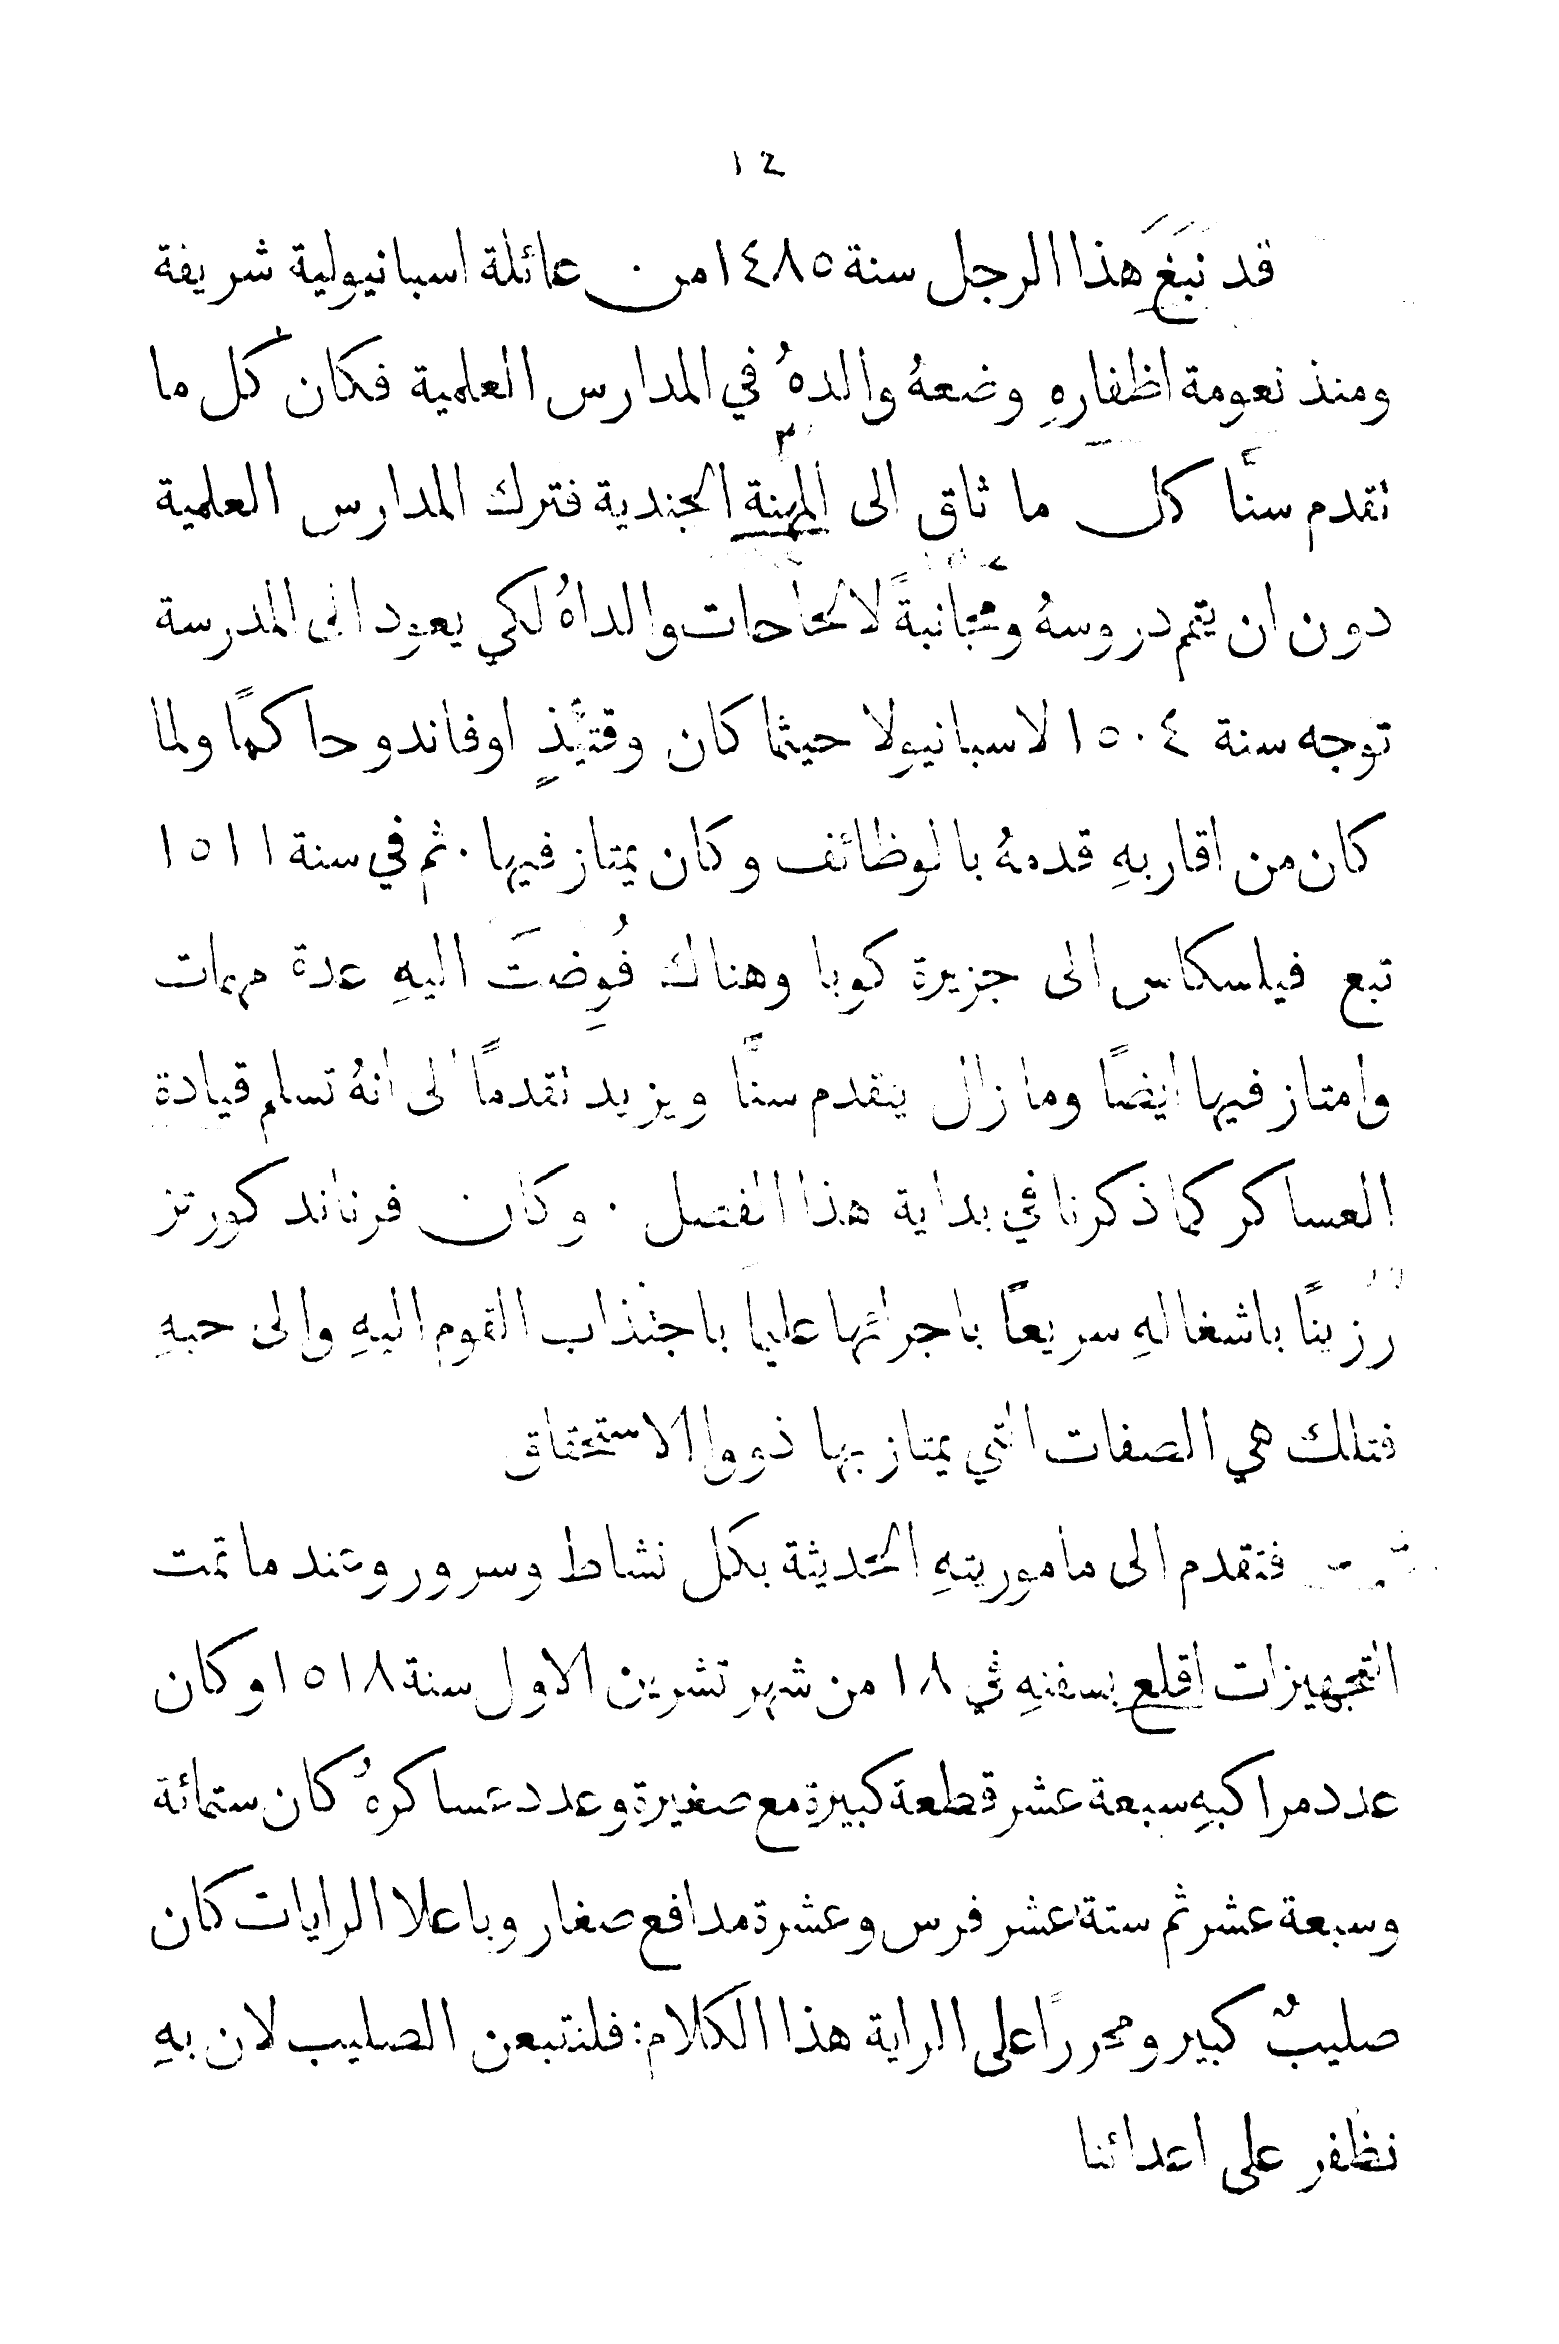 ١٤
قد نَبَغَ هذا الرجل سنة ١٤٨٥ من عائلة اسبانيولية شريفة
ومنذ نعومة اظفارهِ وضعهُ والدهُ في المدارس العلمية فكان كل ما
تقدم سنًّا كل ما ثاق الى المهنة الجندية فترك المدارس العلمية
دون ان يتمم دروسهُ ومجانبةً لالحاحات والداهُ لكي يعود الى المدرسة
توجه سنة ١٥٠٤ لاسبانيولا حيثما كان وقتئذٍ اوفاندو حاكمًا ولما
كان من اقاربهِ قدمهُ بالوظائف وكان يمتاز فيها . ثم في سنة ١٥١١
تبع فيلسكاس الى جزيرة كوبا وهناك فُوِضَت اليهِ عدة مهمات
وامتاز فيها ايضًا وما زال يتقدم سنًّا ويزيد تقدمًا الى انهُ تسلم قيادة
العساكر كما ذكرنا في بداية هذا الفصل . وكان فرناند كورتز
رزينًا باشغالهِ سريعًا باجرائها عليما باجتذاب القوم اليهِ والى حبهِ
فتلك هي الصفات التي يمتاز بها ذووا الاستحقاق
فتقدم الى ماموريتهِ الحديثة بكل نشاط وسرور وعند ما تمت
التجهيزات اقلع بسفنهِ في ١٨ من شهر تشرين الاول سنة ١٥١٨ وكان
عدد مراكبهِ سبعة عشر قطعة كبيرة مع صغيرة وعدد عساكرهُ كان ستمائة
وسبعة عشر ثم ستة عشر فرس وعشرة مدافع صغار وباعلا الرايات كان
صليبٌ كبير ومحررًا على الراية هذا الكلام : فلنتبعن الصليب لان بهِ
نظفر على اعدائنا